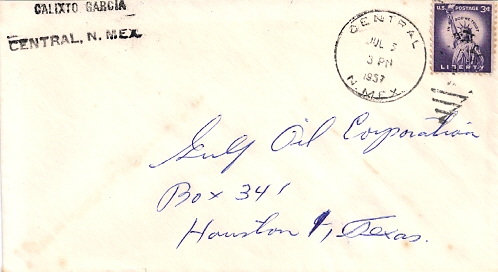 CALIXTO GARCIA
CENTRAL, N. MEX.
CENTRAL
JUL
3 PM
1957
N. MEX.
U.S. POSTAGE 3¢
IN GOD WE TRUST
LIBERTY
Gulf Oil Corporation
Box 341
Houston 1, Texas.